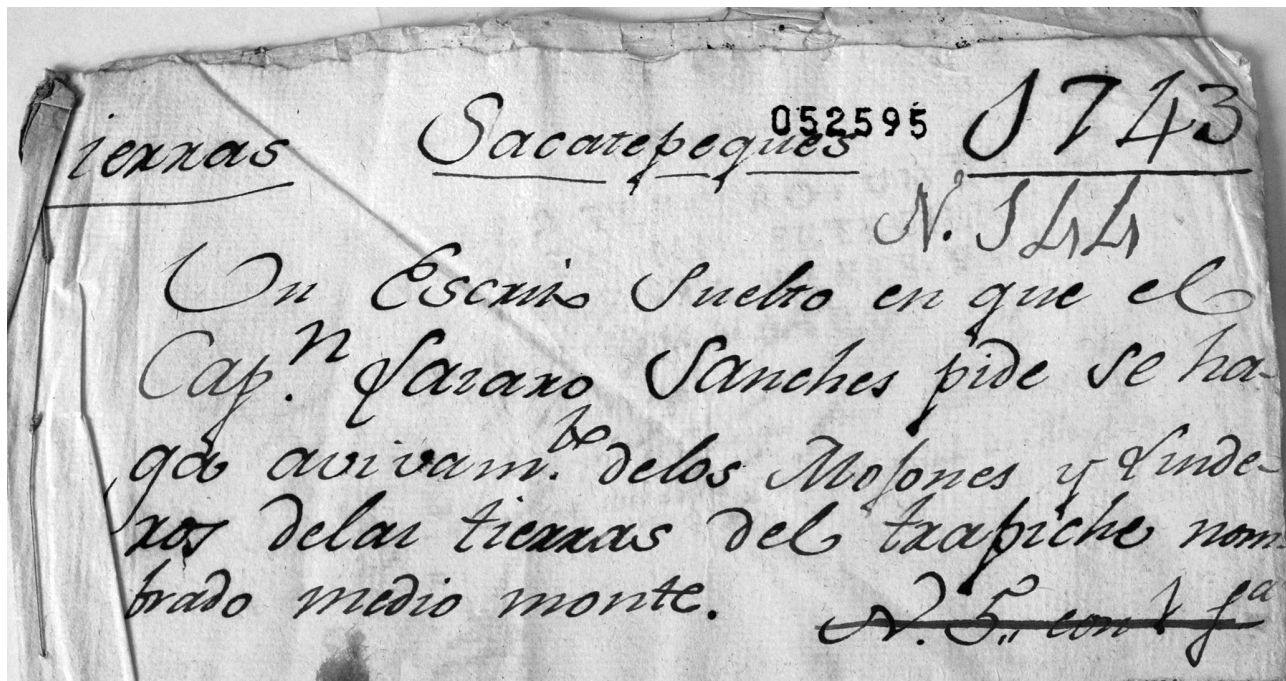 ierras Sacatepeques 052595 1743
N.º 144
Un Escrito Suelto en que el
Cap.n Lazaro Sanches pide se ha-
ga avivam.to delos Mojones y Linde-
ros delas tierras del trapiche nom-
brado medio monte.
N. 5,, con 1 f.a